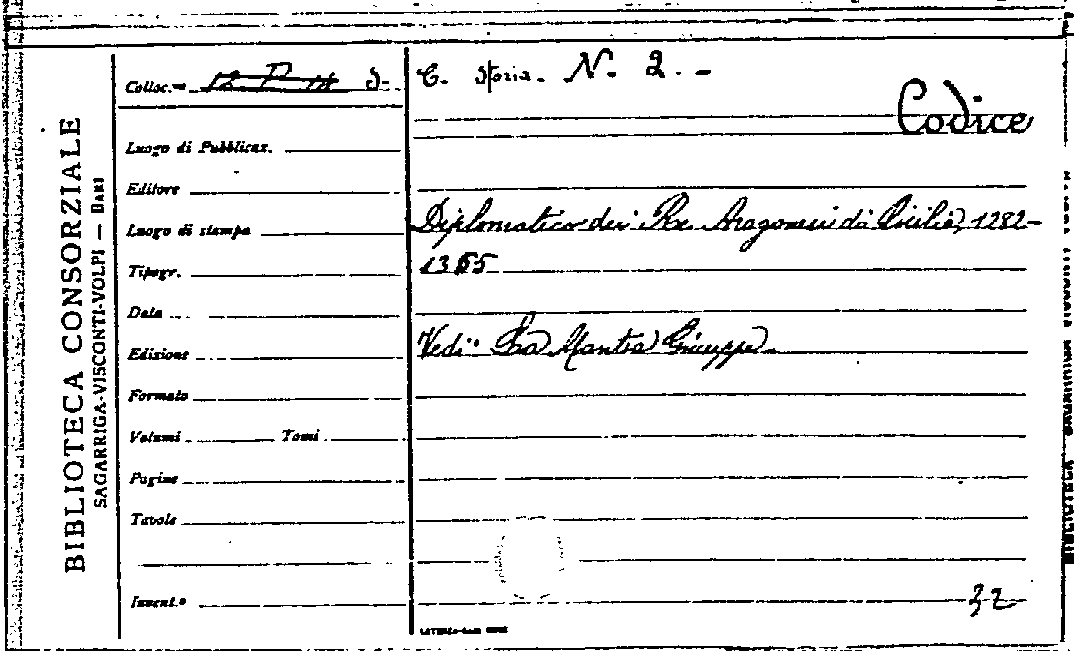 Colloc.ne 12 P 14 S. C. Storia. N. 2. -
Codice
Luogo di Pubblicaz.
Editore
Luogo di stampa
Diplomatico dei Re Aragonesi di Sicilia, 1282-
Tipogr.
1355
Data
Edizione
Vedi: La Mantia Giuseppe
Formato
Volumi Tomi
Pagine
Tavole
Invent.o
32
BIBLIOTECA CONSORZIALE
SAGARRIGA-VISCONTI-VOLPI — BARI